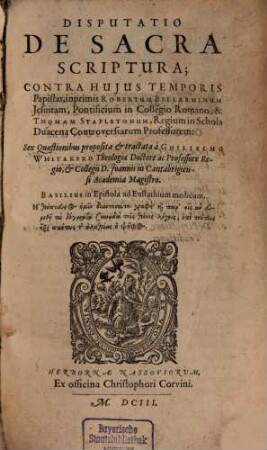 DISPUTATIO
DE SACRA
SCRIPTURA;
CONTRA HUJUS TEMPORIS
Papistas, inprimis ROBERTUM BELLARMINUM
Jesuitam, Pontificium in Collegio Romano, &
THOMAM STAPLETONUM, Regium in Schola
Duacena Controversiarum Professorem:
Sex Quæstionibus proposita & tractata à GUILIELMO
WHITAKERO Theologiæ Doctore ac Professore Re-
gio, & Collegii D. Joannis in Cantabrigien-
si Academia Magistro.
BASILIUS in Epistola ad Eustathium medicum.
HERBORNÆ NASSOVIORUM,
Ex officina Christophori Corvini.
M. DCIII.
Bayerische
Staatsbibliothek